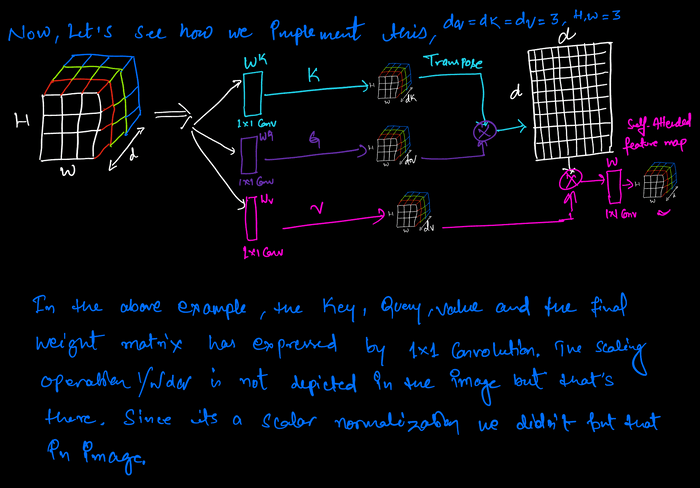 Now, Let's see how we implement this, dq = dK = dv = 3, H,w = 3
H
W
d
W^K
K
1x1 Conv
H
W
dK
Transpose
d
d
W^q
Q
1x1 Conv
H
W
dq
Self-Attended
feature map
Wv
V
1x1 Conv
H
W
dv
W
1x1 Conv
H
W
In the above example, the Key, Query, value and the final
weight matrix has expressed by 1x1 Convolution. The scaling
is not depicted in the image but that's
there. Since its a scalar normalization we didn't put that
in image.